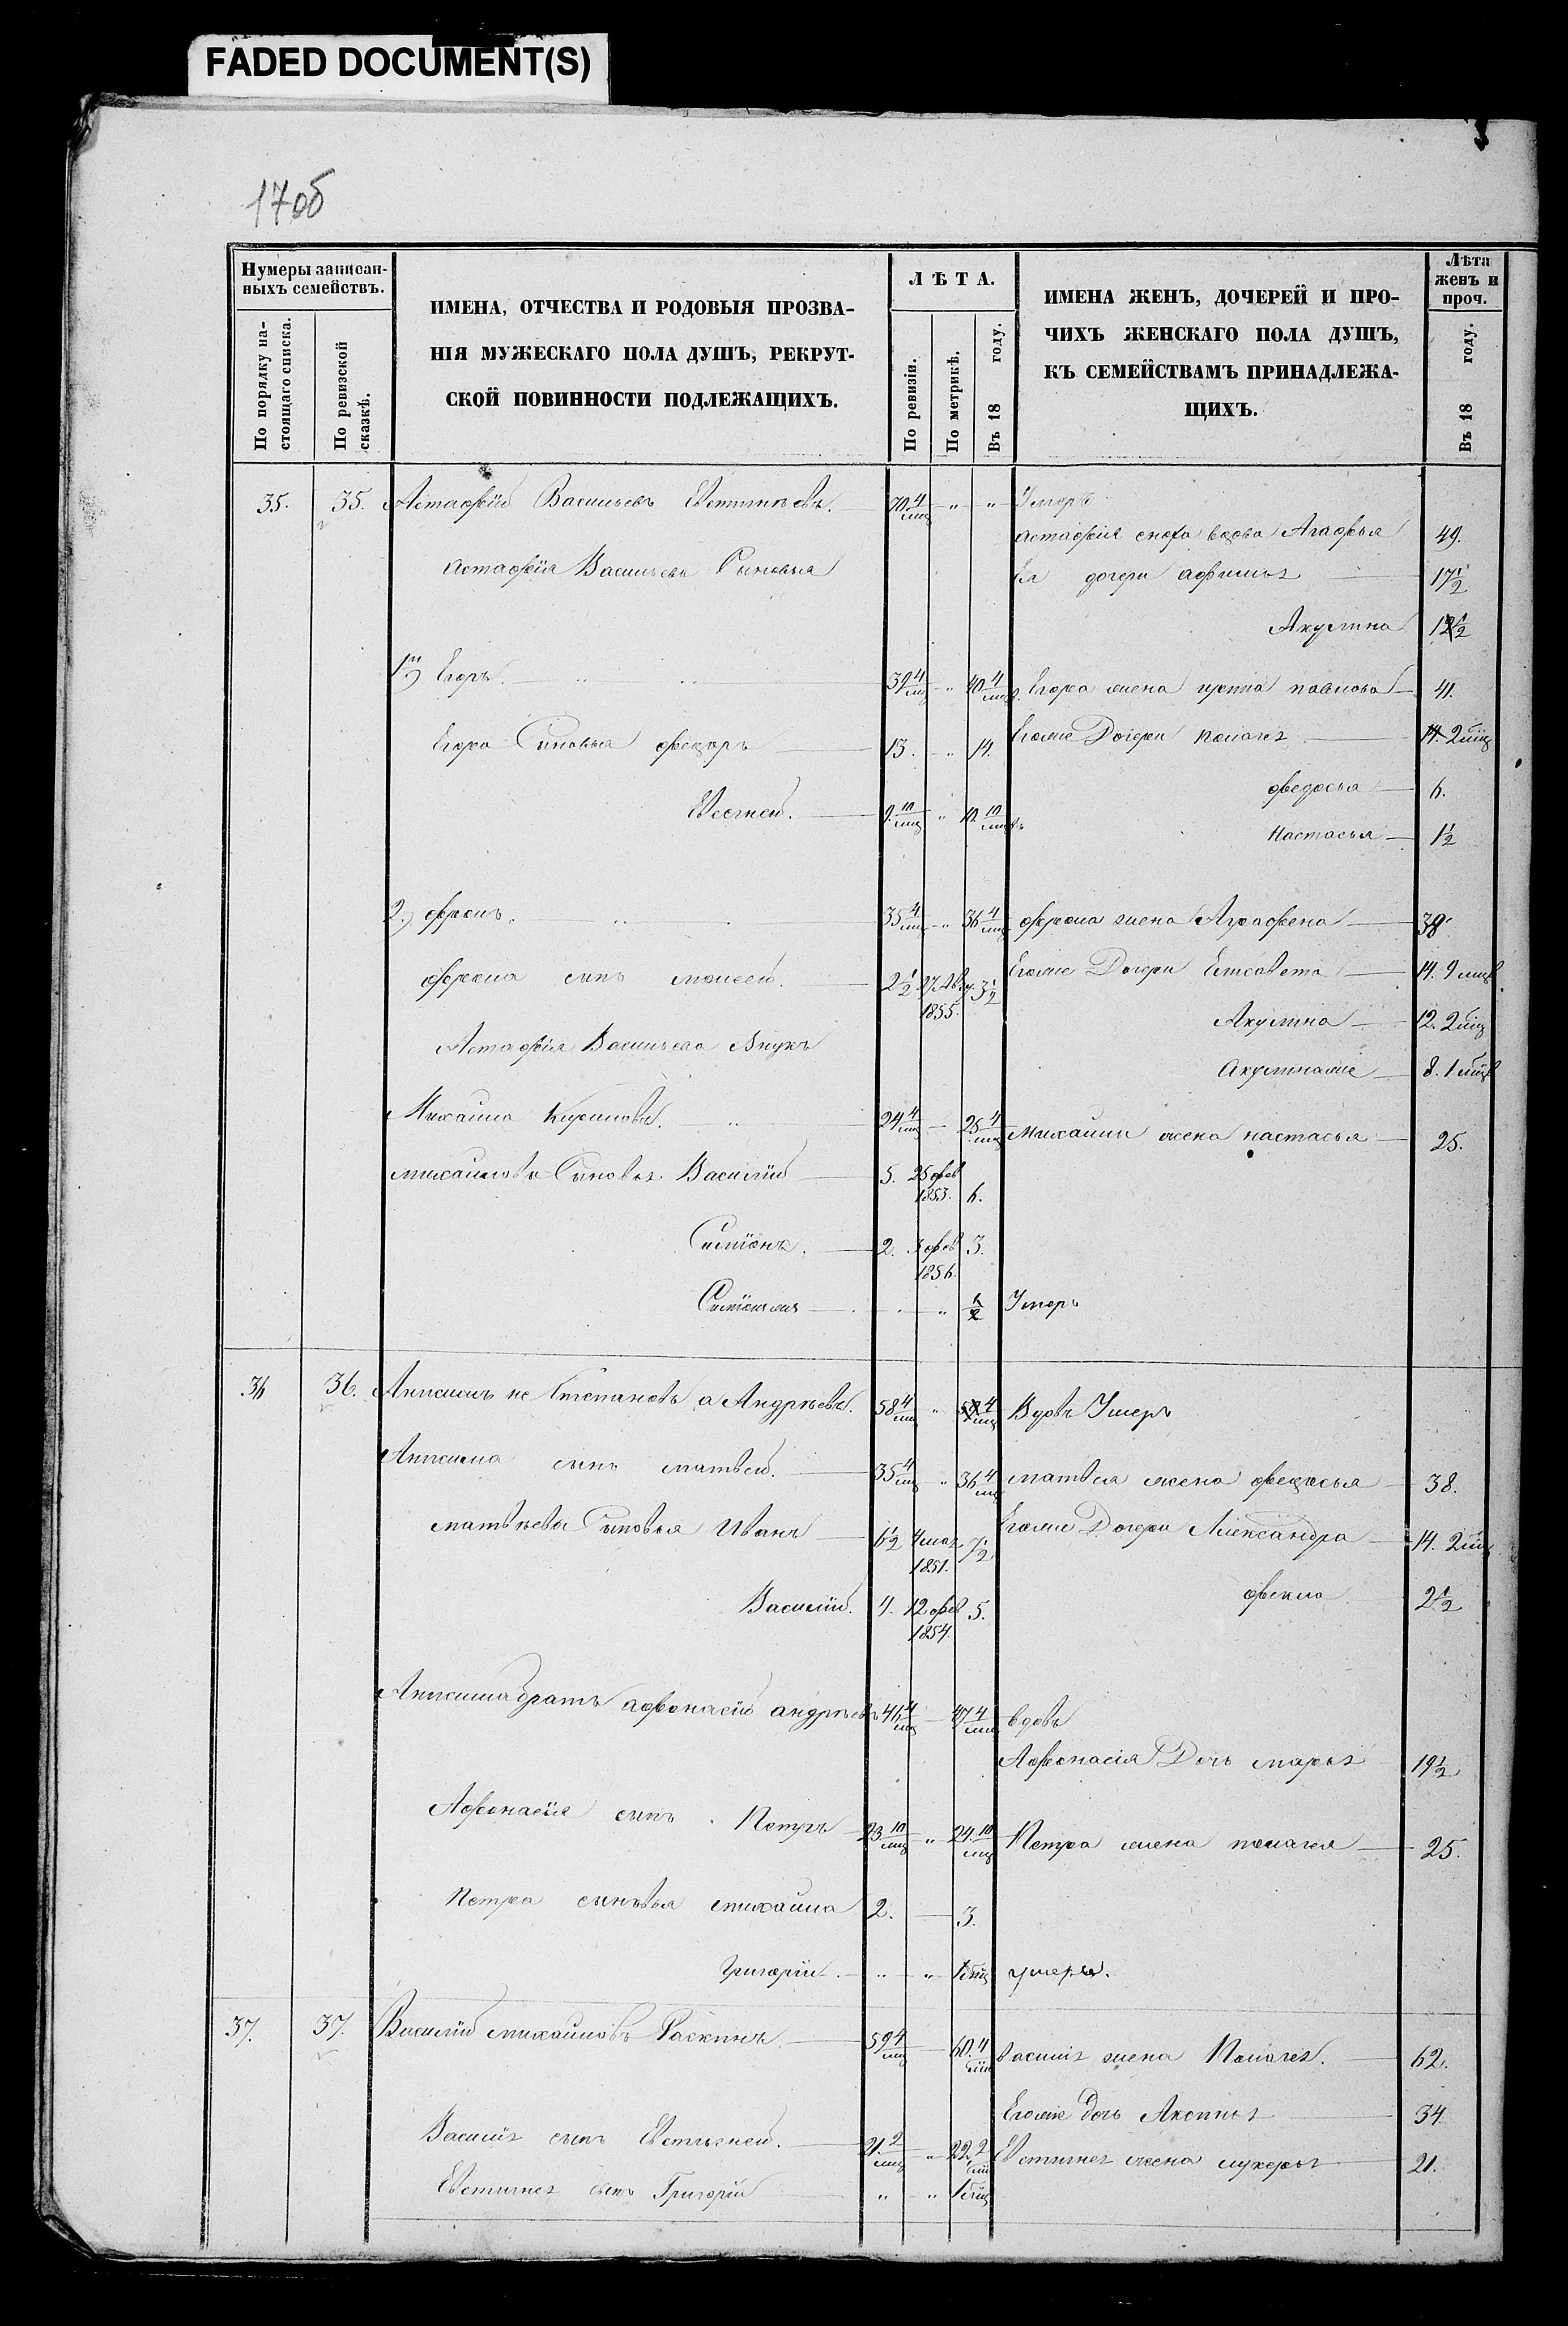 FADED DOCUMENT(S)
17об
Нумеры записан-
ныхъ семействъ.
По порядку на-
стоящаго списка.
По ревизской
сказкѣ.
ИМЕНА, ОТЧЕСТВА И РОДОВЫЯ ПРОЗВА-
НІЯ МУЖЕСКАГО ПОЛА ДУШЪ, РЕКРУТ-
СКОЙ ПОВИННОСТИ ПОДЛЕЖАЩИХЪ.
ЛѢТА.
По ревизіи.
По метрикѣ.
Въ 18 году.
ИМЕНА ЖЕНЪ, ДОЧЕРЕЙ И ПРО-
ЧИХЪ ЖЕНСКАГО ПОЛА ДУШЪ,
КЪ СЕМЕЙСТВАМЪ ПРИНАДЛЕЖА-
ЩИХЪ.
Лѣта
женъ и
проч.
Въ 18 году.
35. 35. Астафій Васильевъ 70 4/мц „ „ Умеръ
Астафія сноха вдова Агафья 49.
Астафія Васильева Сыновья Ея дочери 17 1/2
Акулина
1й) Егоръ. 39 4/мц „ 40 4/мц Егора жена 41.
Егора Сыновья Федоръ 13. „ 14. Егоже Дочери Пелагея 14. 2 мц
Федосья 6.
Евсегней. 9. 10/мц „ 10. 10/мцвъ
Настасья 1 1/2
2.) Фролъ. 35 4/мц „ 36 4/мц Фрола жена Аграфена 38.
Фрола сынъ Моисей. 2 1/2 27 Авгу. 1855. 3 1/2 Егоже Дочери Елисавета 14. 9 мцв
Акулина 12. 2 мц
Астафія Васильева Внукъ
Акулинаже 8. 1 мцв
Михаила Кириловъ. 24 4/мц 25 4/мц Михаилы жена Настасья 25.
Михаиловы Сыновья Василій 5. 25 фев 1853. 6.
Симіонъ. 2. 3 фев 1856. 3.
Симіонже „ Умеръ
36 36. Анисимъ не Степановъ а Андреевъ. 58 4/мц „ Вдовъ Умеръ
Анисима сынъ Матвей. 35 4/мц „ 36 4/мц Матвея жена Федосья 38.
Матвѣевы Сыновья Иванъ 6 1/2 4 мая 1851. 7 1/2 Егоже Дочери Александра 14. 2 мц
Василій. 4. 12 фев 1854. 5. Фекла 2 1/2
Анисима братъ Афонасій Андреевъ 46 4/мц 47 4/мц вдовъ
Афонасія Дочь Марья 19 1/2
Афонасія сынъ Петръ 23 10/мц „ 24. 10/мц Петра жена Пелагея 25.
Петра сыновья Михаила 2. 3.
Григорій. „ „ умеръ.
37. 37. Василій Михаиловъ Раскинъ 59 4/мц 60. 4/мц Василія жена Пелагея. 62.
Егоже дочь Аксинья 34
Василія сынъ Евстигней. 21. 2/мц „ 22. 2/мц Евстигнея жена Лукерья 21.
Евстигнея сынъ Григорій „ „